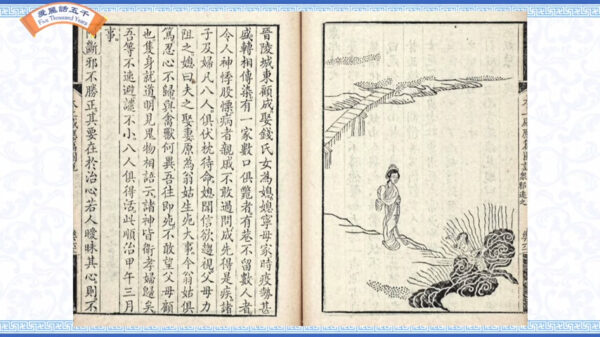 愛麗話五千
Five Thousand Years
感應篇圖說 眾邪遠之
晉陵城東顧成娶錢氏女為媳媳寧母家時疫勢甚
盛轉相傳染有一家數口俱斃者有巷不留數人者
令人神悸股慄病者親戚不敢過問成先得是疾諸
子及婦凡八人俱伏枕待命媳聞信欲趨視父母力
阻之媳曰夫之娶妻原為翁姑生死大事今翁姑俱
篤忍心不歸與禽獸何異吾往即死不敢望父母顧
也隻身就道明見鬼物相語云諸神皆衛孝婦歸矣
吾等不速避譴不小八人俱得活此順治甲午三月
事
斷邪不勝正其要在於治心若人曖昧其心則不